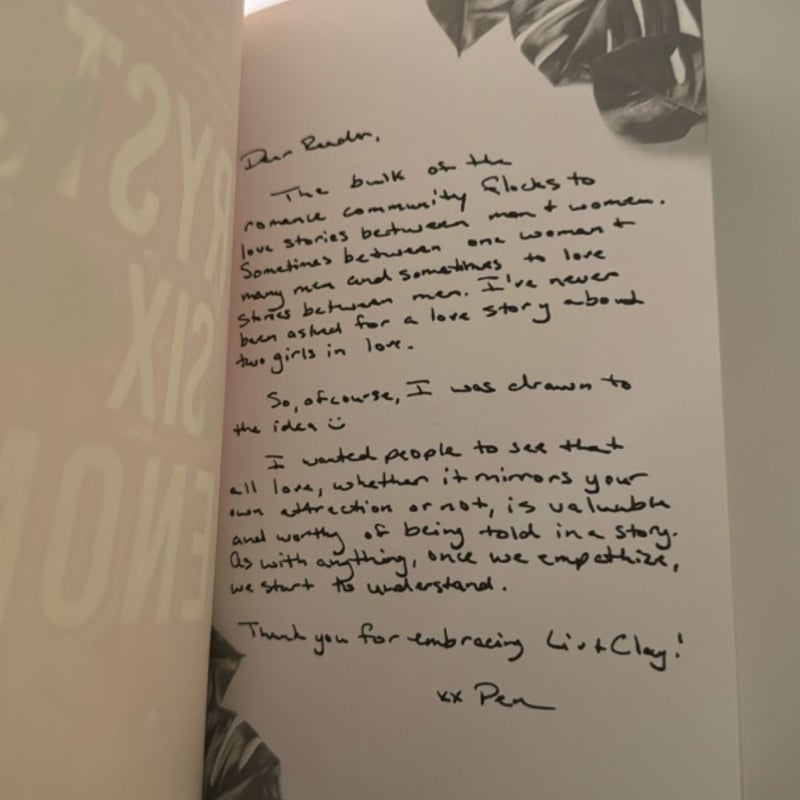 Dear Reader,
The bulk of the
romance community flocks to
love stories between men + women.
Sometimes between one woman +
many men and sometimes to love
stories between men. I've never
been asked for a love story about
two girls in love.
So, of course, I was drawn to
the idea ☺
I wanted people to see that
all love, whether it mirrors your
own attraction or not, is valuable
and worthy of being told in a story.
As with anything, once we empathize,
we start to understand.
Thank you for embracing Liv + Clay!
xx Pen
RYST
SIX
ENOM